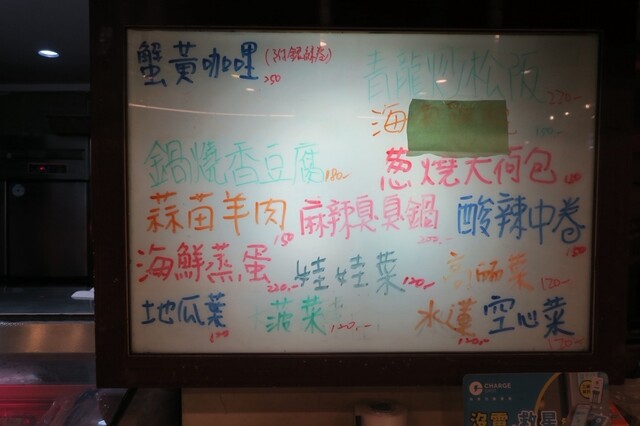 蟹黃咖哩(附銀絲卷) 250
青龍炒松阪 220.-
海 150.-
鍋燒香豆腐 180.-
蔥燒大荷包
蒜苗羊肉 150
麻辣臭臭鍋 200.-
酸辣中卷 150
海鮮蒸蛋 220.-
娃娃菜 120.-
高麗菜 120.-
地瓜葉
菠菜 120.-
水蓮 120.-
空心菜 120.-
CHARGE
SPOT
沒電 救星